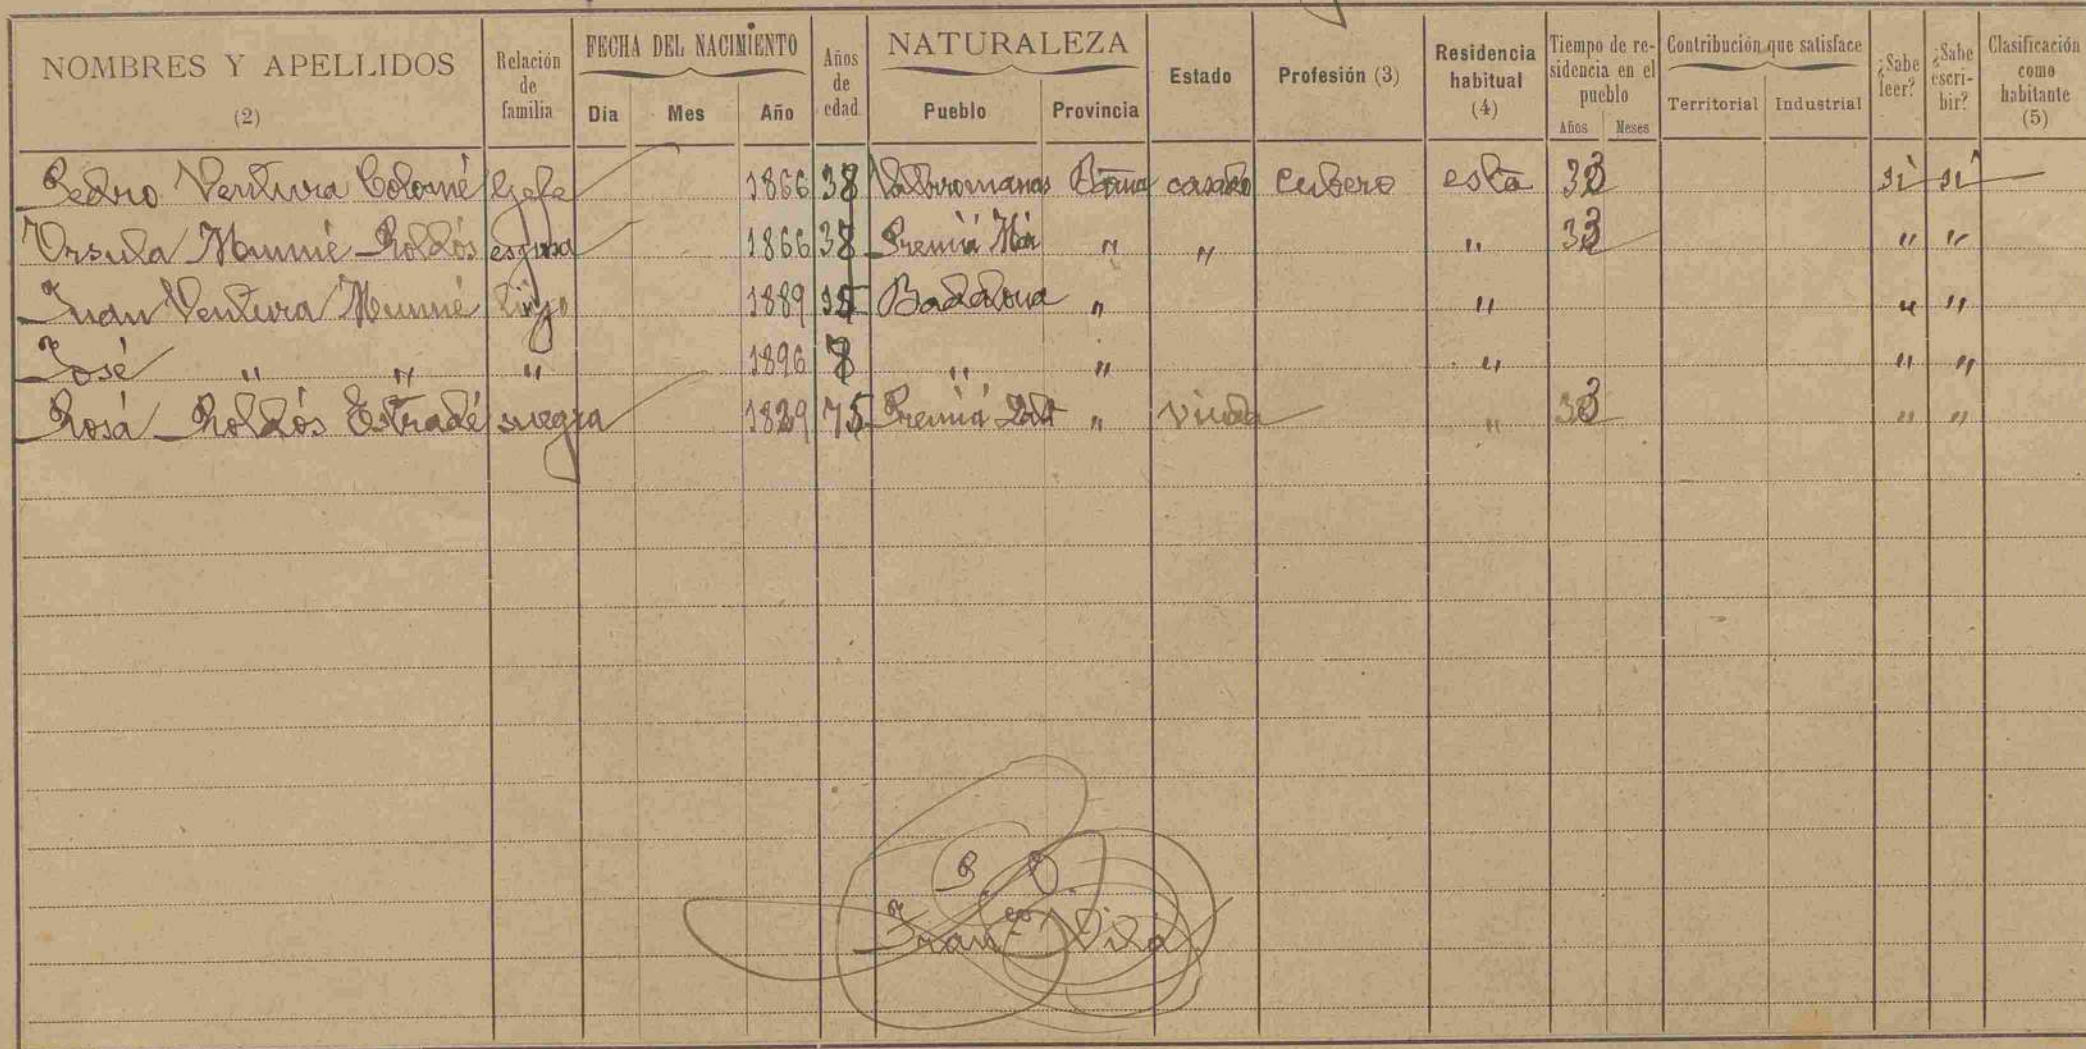 NOMBRES Y APELLIDOS (2) Relación de familia FECHA DEL NACIMIENTO Día Mes Año Años de edad NATURALEZA Pueblo Provincia Estado Profesión (3) Residencia habitual (4) Tiempo de residencia en el pueblo Años Meses Contribución que satisface Territorial Industrial ¿Sabe leer? ¿Sabe escribir? Clasificación como habitante (5)
Pedro Ventura Colomé Gefe 1866 38 Vallromanas Bna casado Cubero esta 33 si si
Ursula Munné Roldós esposa 1866 38 Premiá Mar " " " 33 " "
Juan Ventura Munné hijo 1889 15 Badalona " " " "
José " " " 1896 8 " " " " "
Rosa Roldós Estradé suegra 1829 75 Premiá Dalt " viuda " 33 " "
Franco Vila